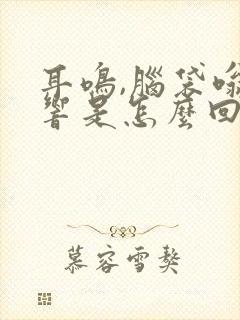 耳鳴,腦袋嗡
響是怎麼回
慕容雪獒